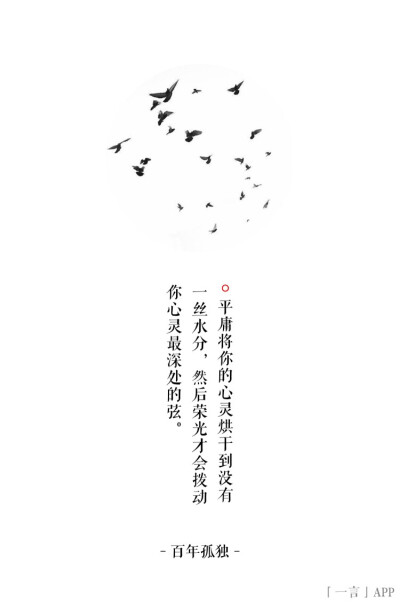 平庸将你的心灵烘干到没有
一丝水分，然后荣光才会拨动
你心灵最深处的弦。
-百年孤独-
「一言」APP